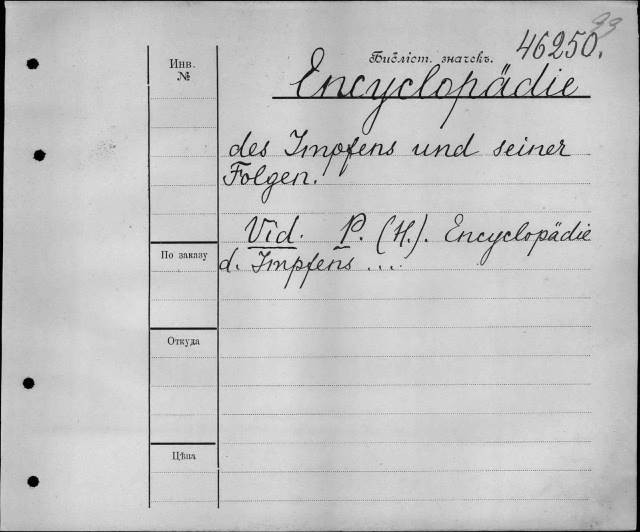 99
46250.
Библіот. значекъ.
Инв.
№
Encyclopädie
des Impfens und seiner
Folgen.
Vid. P. (H.). Encyclopädie
По заказу
d. Impfens ...
Откуда
Цѣна